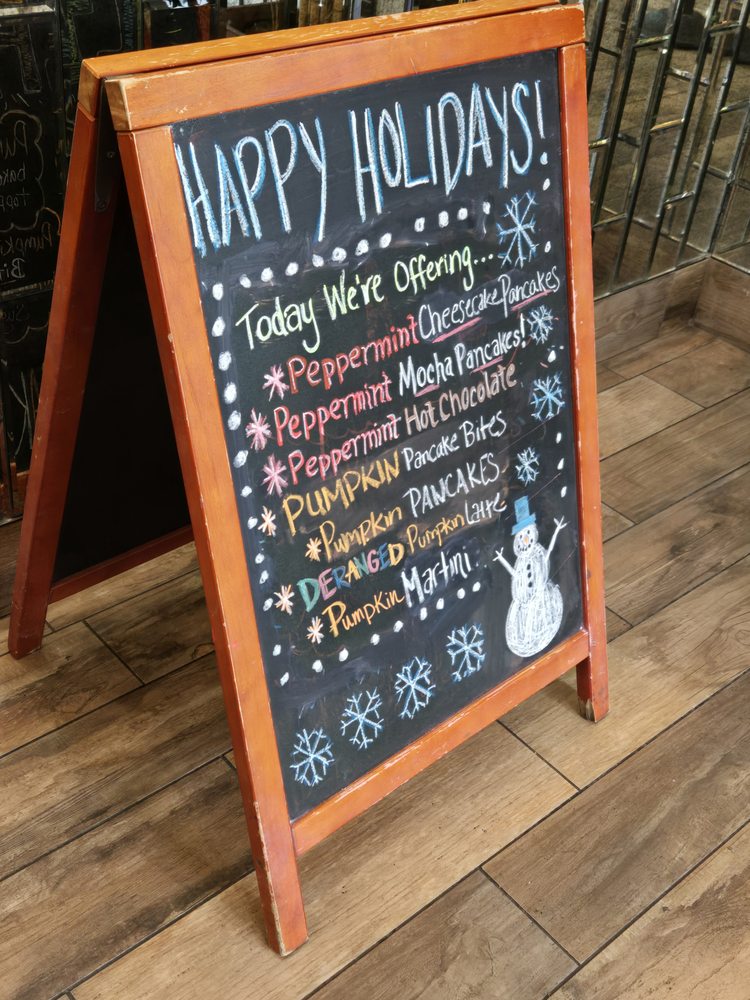 HAPPY HOLIDAYS!
Today We're Offering...
Peppermint Cheesecake Pancakes
Peppermint Mocha Pancakes!
Peppermint Hot Chocolate
PUMPKIN Pancake Bites
Pumpkin PANCAKES
DERANGED Pumpkin Latte
Pumpkin Martini